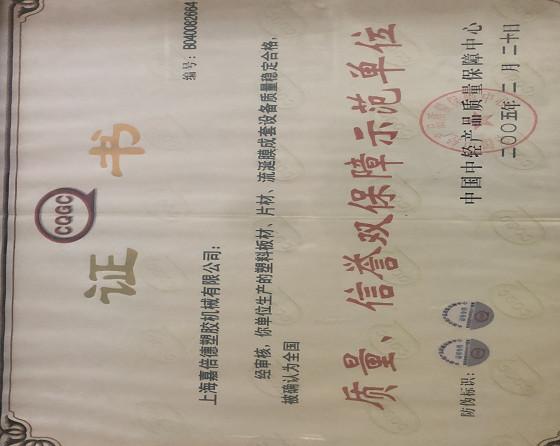 CQGC
证书
编号：B040082664
上海嘉倍德塑胶机械有限公司：
经审核，你单位生产的塑料板材、片材、流涎膜成套设备质量稳定合格，
被确认为全国
质量、信誉双保障示范单位
防伪标识：
中国中轻产品质量保障中心
二〇〇五年二月二十日